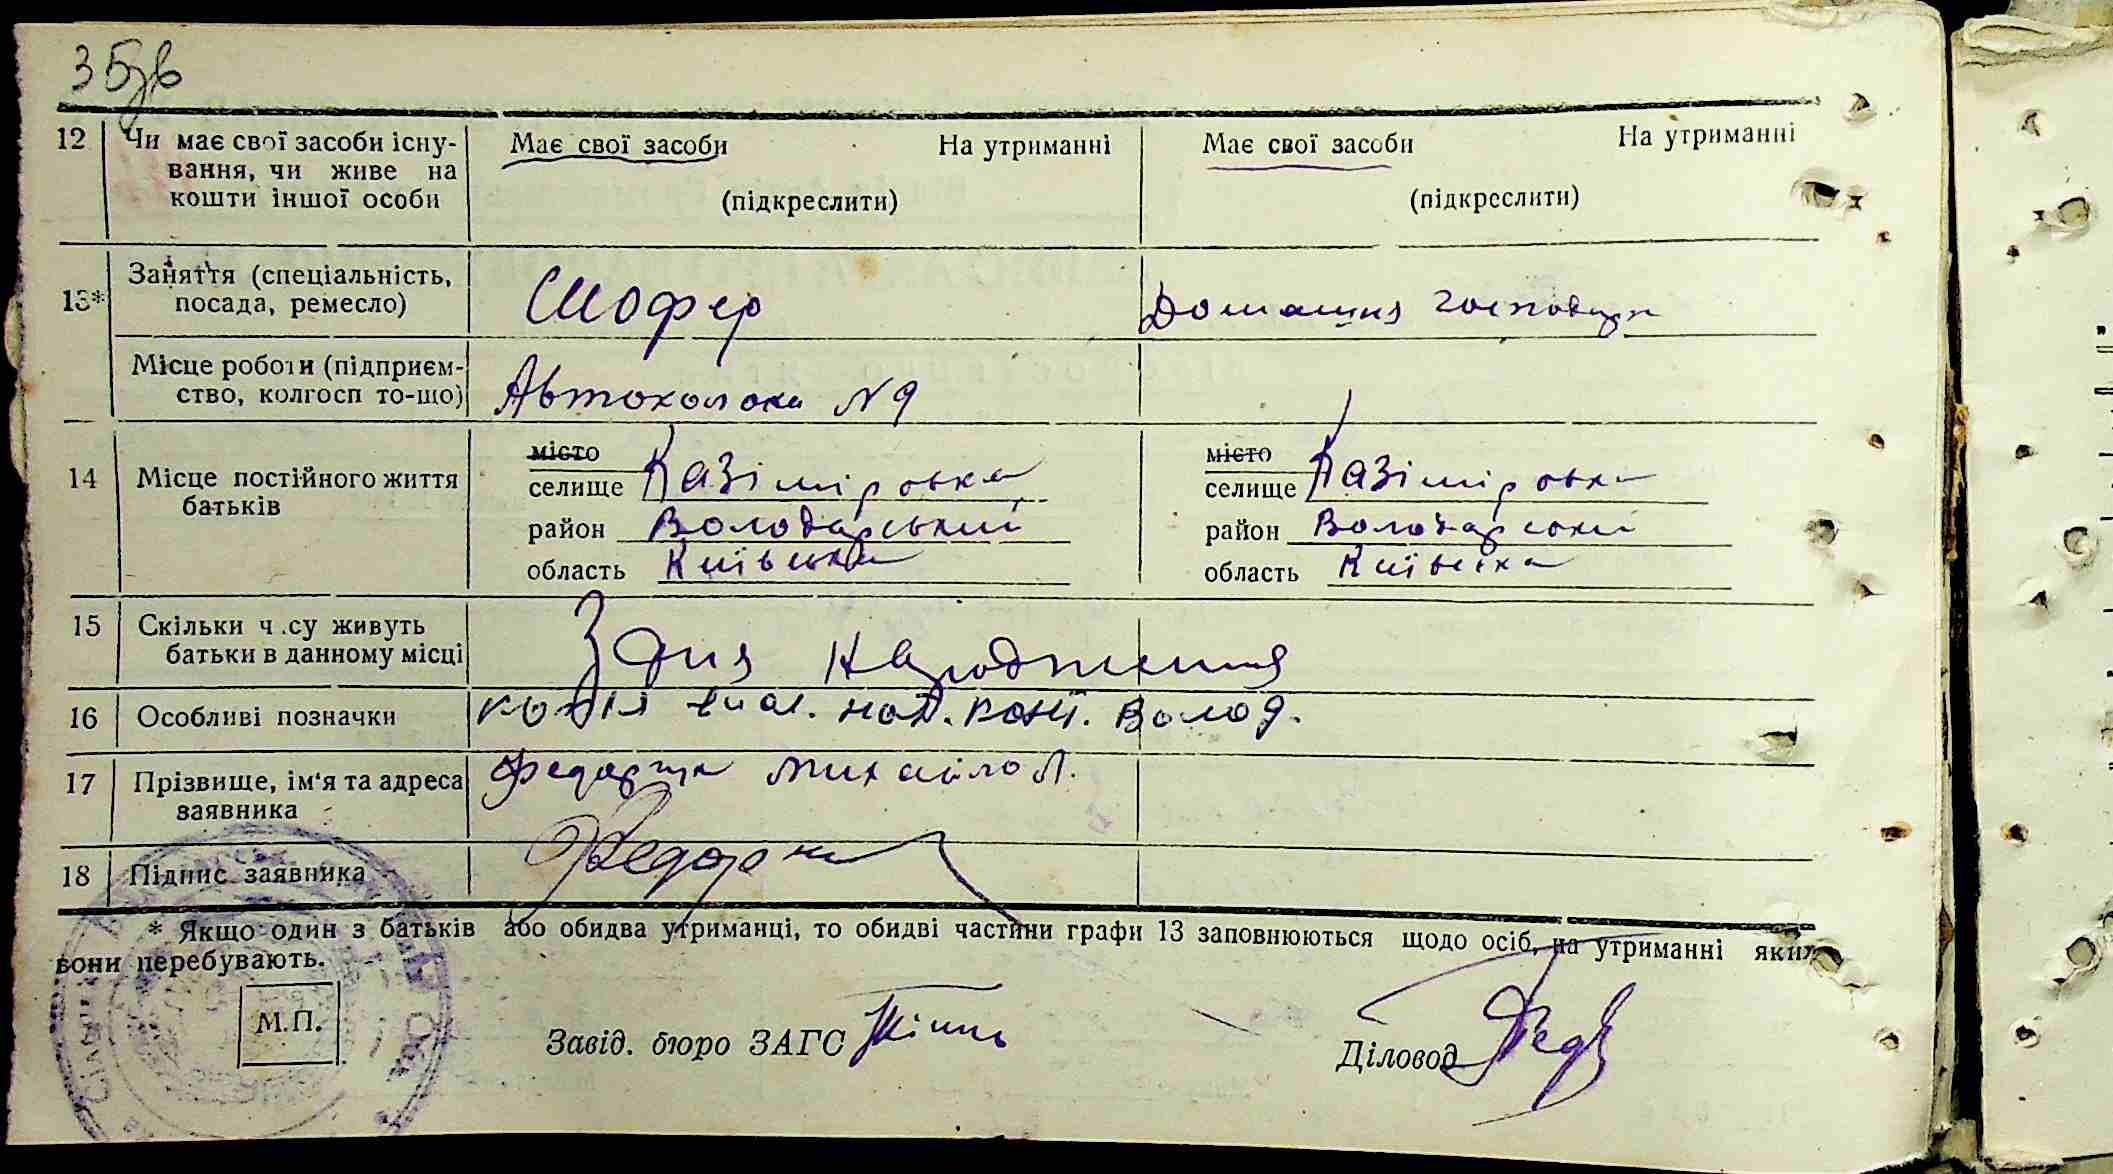 35зв
12 Чи має свої засоби існу- Має свої засоби На утриманні Має свої засоби На утриманні
вання, чи живе на (підкреслити) (підкреслити)
кошти іншої особи
13* Заняття (спеціальність, Шофер Домашня господарк
посада, ремесло)
Місце роботи (підприєм- Автоколона N 9
ство, колгосп то-що)
14 Місце постійного життя місто місто
батьків селище Казіміровка селище Казіміровка
район Володарський район Володарський
область Київська область Київська
15 Скільки ч.су живуть З дня народження
батьки в данному місці
16 Особливі позначки копія вис. нап. Волод.
17 Прізвище, ім'я та адреса Михайло Л.
заявника
18 Підпис заявника
* Якщо один з батьків або обидва утриманці, то обидві частини графи 13 заповнюються щодо осіб, на утриманні яких
вони перебувають.
М.П.
Завід. бюро ЗАГС Діловод